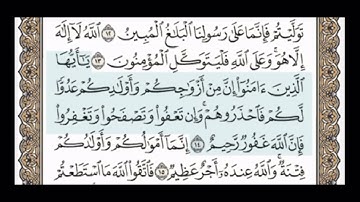 تَوَلَّيۡتُمۡ فَإِنَّمَا عَلَىٰ رَسُولِنَا ٱلۡبَلَٰغُ ٱلۡمُبِينُ ١٢ ٱللَّهُ لَآ إِلَٰهَ
إِلَّا هُوَۚ وَعَلَى ٱللَّهِ فَلۡيَتَوَكَّلِ ٱلۡمُؤۡمِنُونَ ١٣ يَٰٓأَيُّهَا
ٱلَّذِينَ ءَامَنُوٓاْ إِنَّ مِنۡ أَزۡوَٰجِكُمۡ وَأَوۡلَٰدِكُمۡ عَدُوّٗا
لَّكُمۡ فَٱحۡذَرُوهُمۡۚ وَإِن تَعۡفُواْ وَتَصۡفَحُواْ وَتَغۡفِرُواْ
فَإِنَّ ٱللَّهَ غَفُورٞ رَّحِيمٌ ١٤ إِنَّمَآ أَمۡوَٰلُكُمۡ وَأَوۡلَٰدُكُمۡ
فِتۡنَةٞۚ وَٱللَّهُ عِندَهُۥٓ أَجۡرٌ عَظِيمٞ ١٥ فَٱتَّقُواْ ٱللَّهَ مَا ٱسۡتَطَعۡتُمۡ